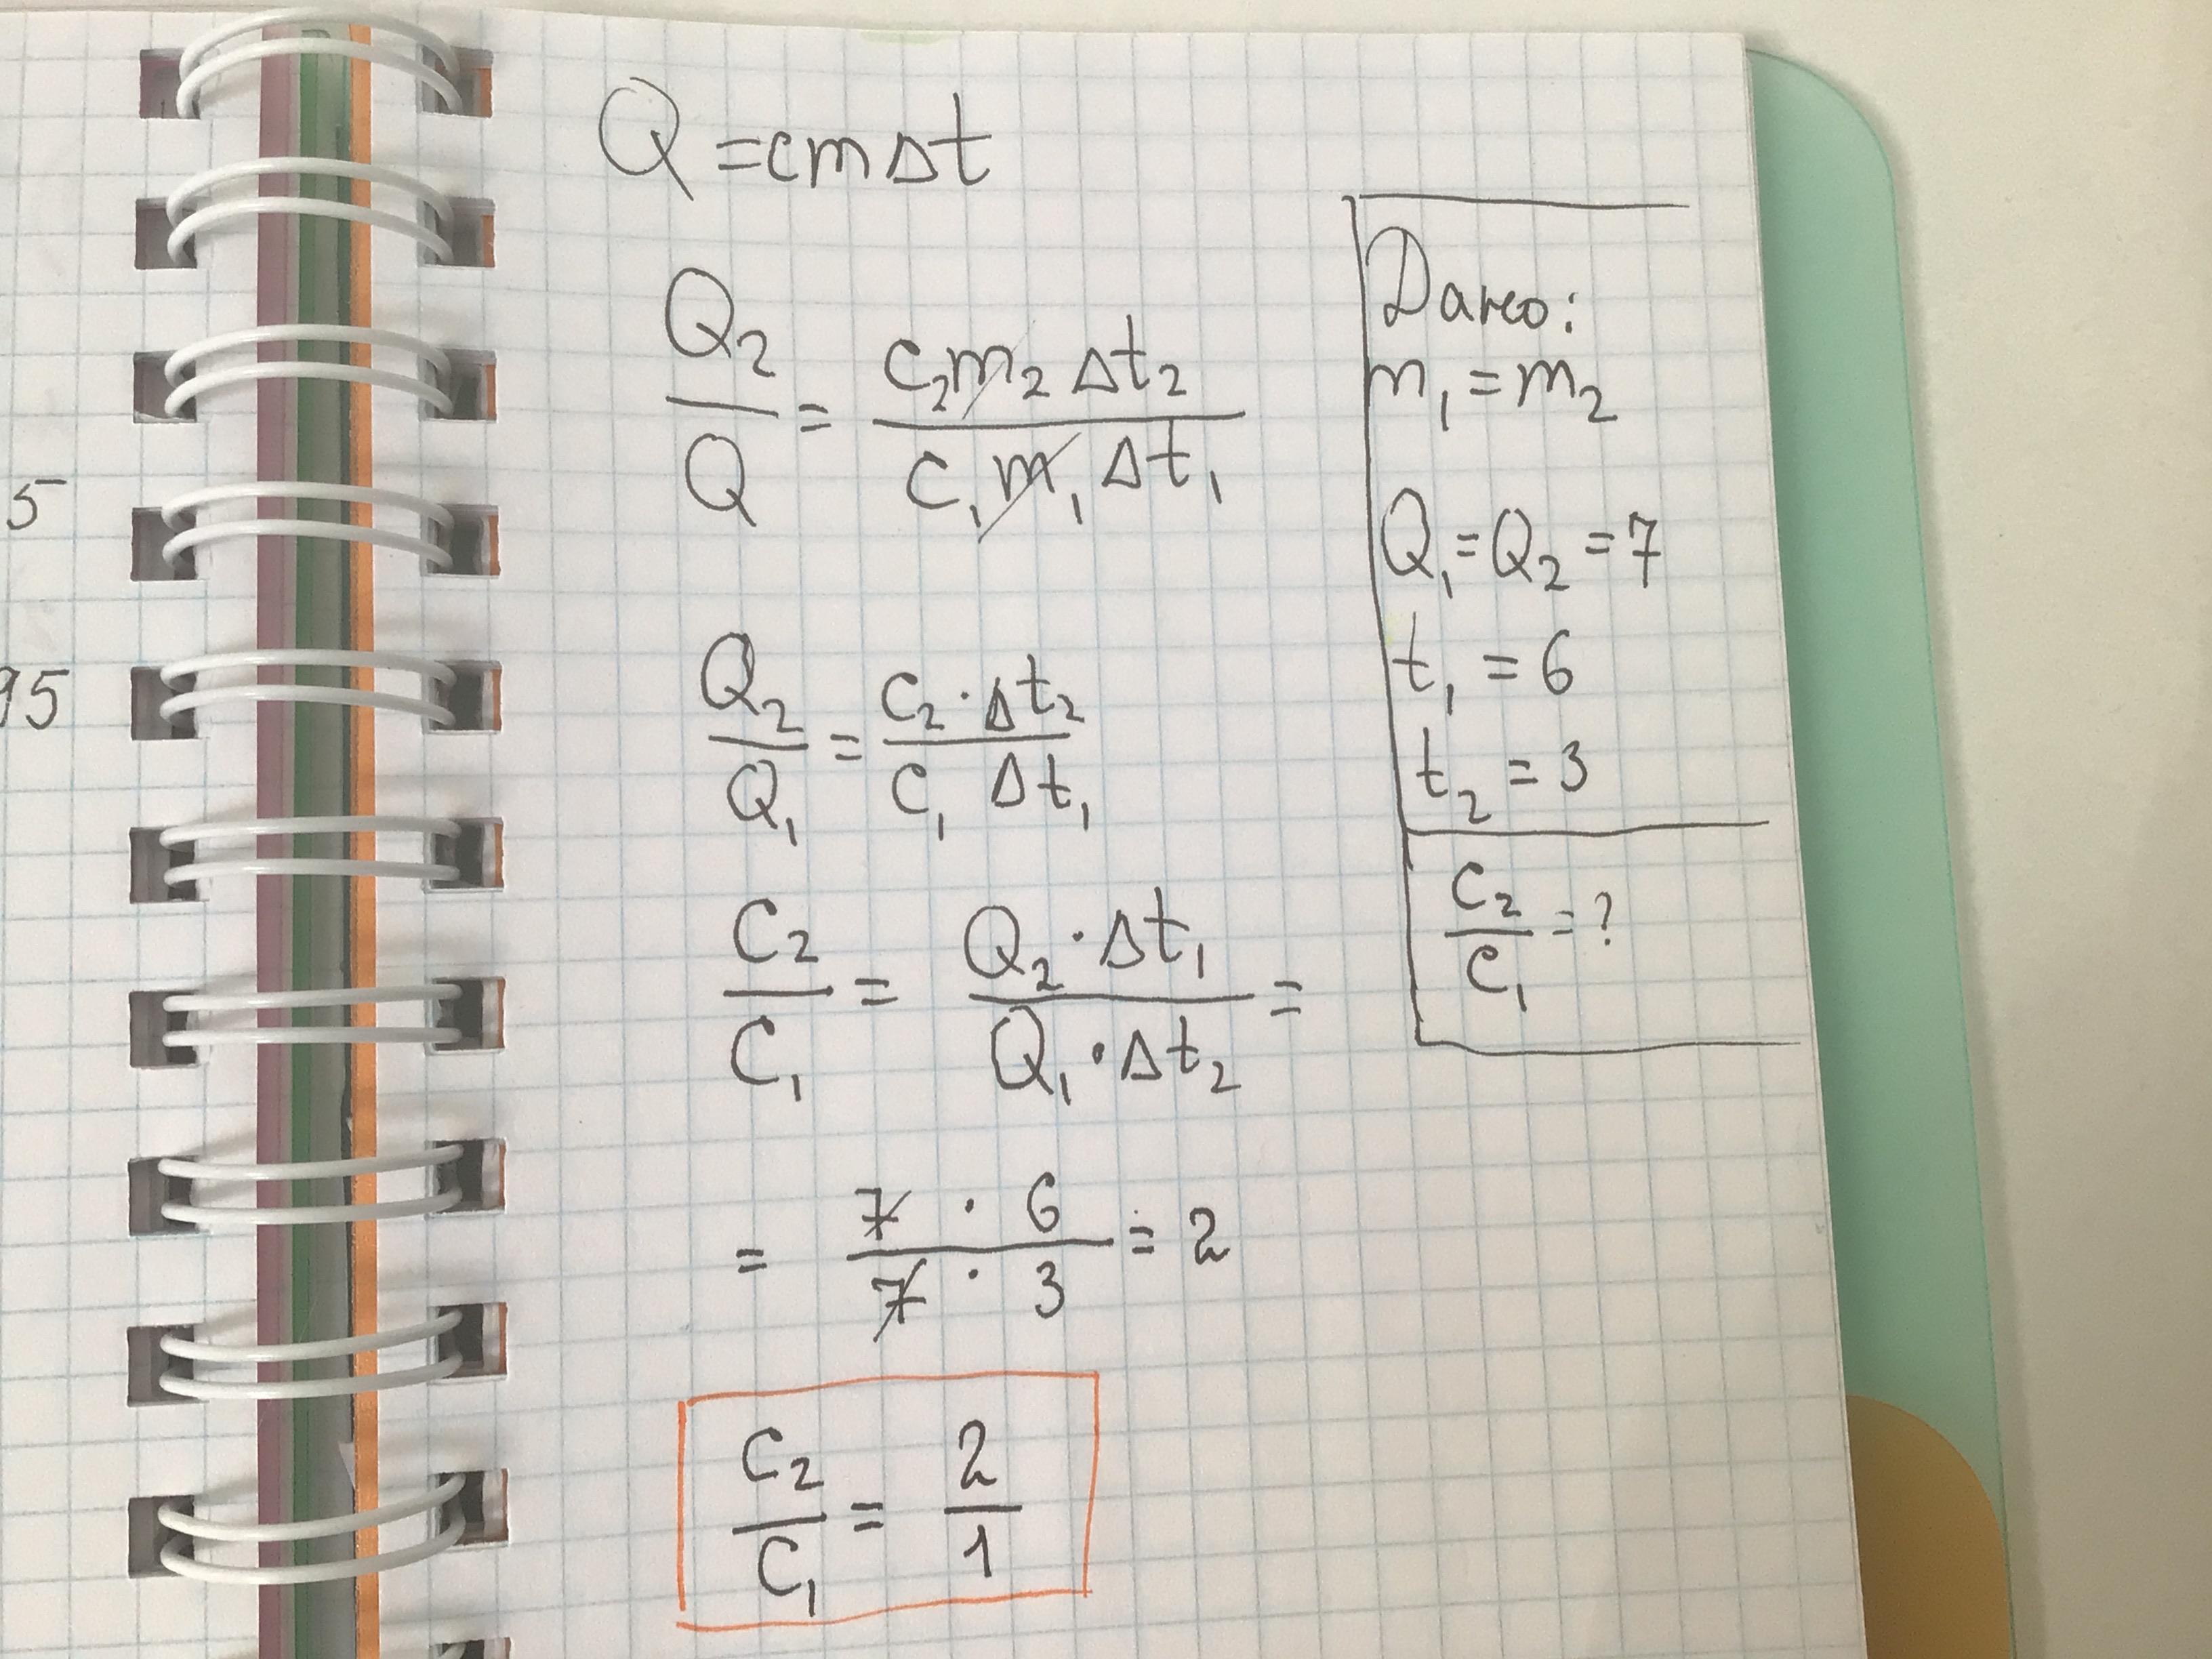 Q = cm Δt
Q₂/Q = c₂m₂ Δt₂ / c₁m₁ Δt₁
Q₂/Q₁ = c₂ · Δt₂ / c₁ Δt₁
c₂/c₁ = Q₂ · Δt₁ / Q₁ · Δt₂ =
= 7 · 6 / 7 · 3 = 2
c₂/c₁ = 2/1
Дано:
m₁ = m₂
Q₁ = Q₂ = 7
t₁ = 6
t₂ = 3
c₂/c₁ = ?
5
95